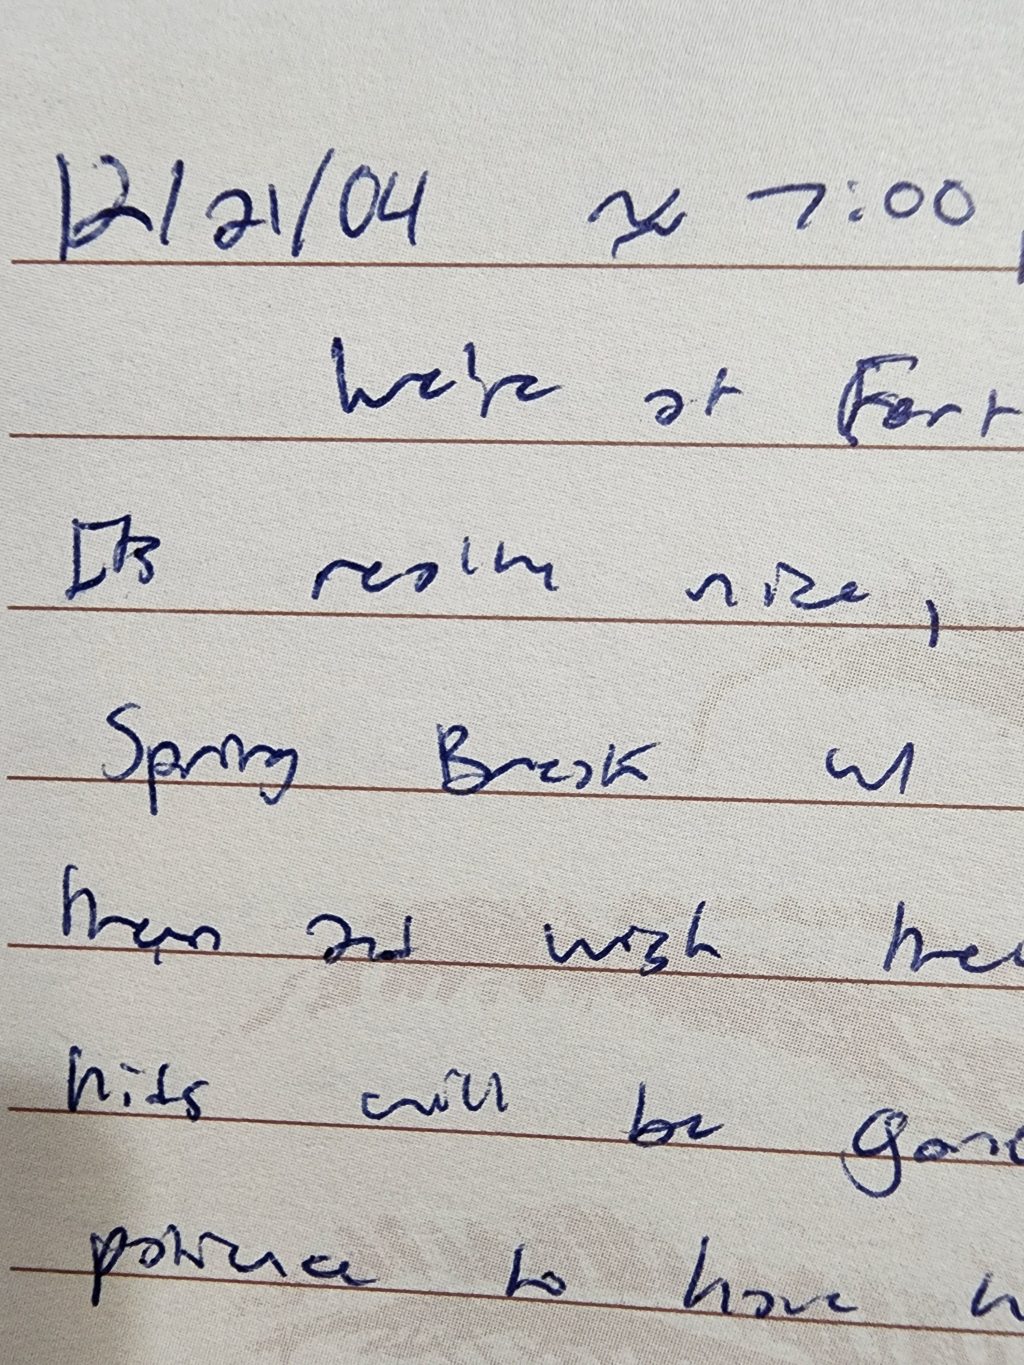 12/21/04 ≈ 7:00
We're at Fort
It's really nice,
Spring Break w/
them and wish they
kids will be gone
patience to have